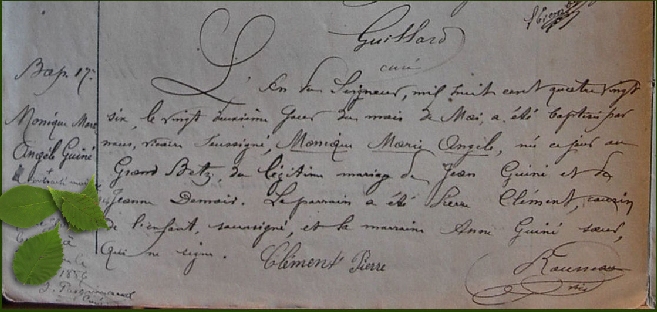 Guillard
curé
Bap. 17:
Monique Marie
Angèle Guiné
L'An du Seigneur, mil huit cent quatre vingt
six, le vingt deuxième jour du mois de Mai, a été baptisée par
nous, vicaire soussigné, Monique Marie Angèle, née ce jour au
Grand Betz, du légitime mariage de Jean Guiné et de
Jeanne Demoir. Le parrain a été Pierre Clément, cousin
de l'enfant, soussigné, et la marraine Anne Guiné sœur,
qui ne signe.
Clément Pierre
Rousseau
vic
1886